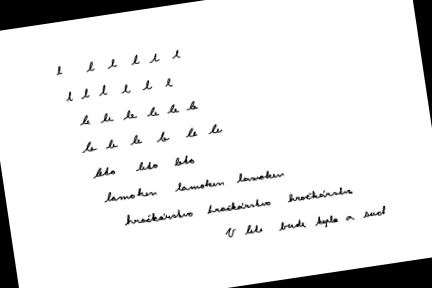 l l l l l l
l l l l l l
le le le le le le
le le le le le le
leto leto leto
lamohen lamohen lamohen
hračkárstvo hračkárstvo hračkárstvo
V lete bude teplo a sucho